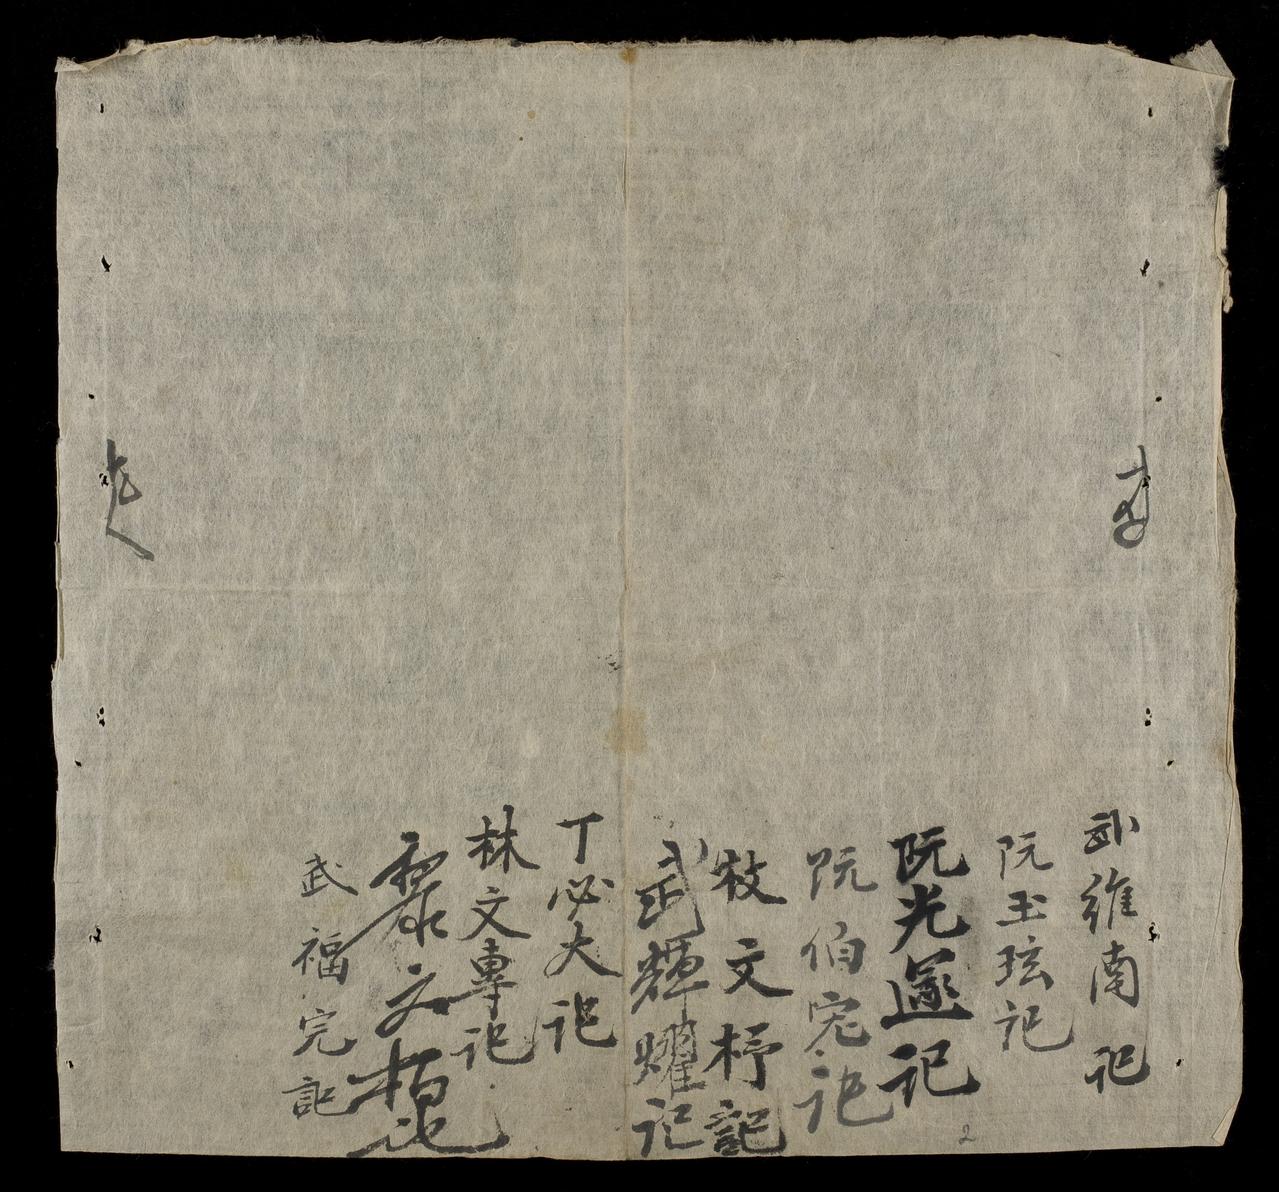 武維南記
阮玉玹記
阮光邃記
阮伯完記
枚文杼記
武輝耀記
丁必大記
林文專記
文 記
武福完記
2